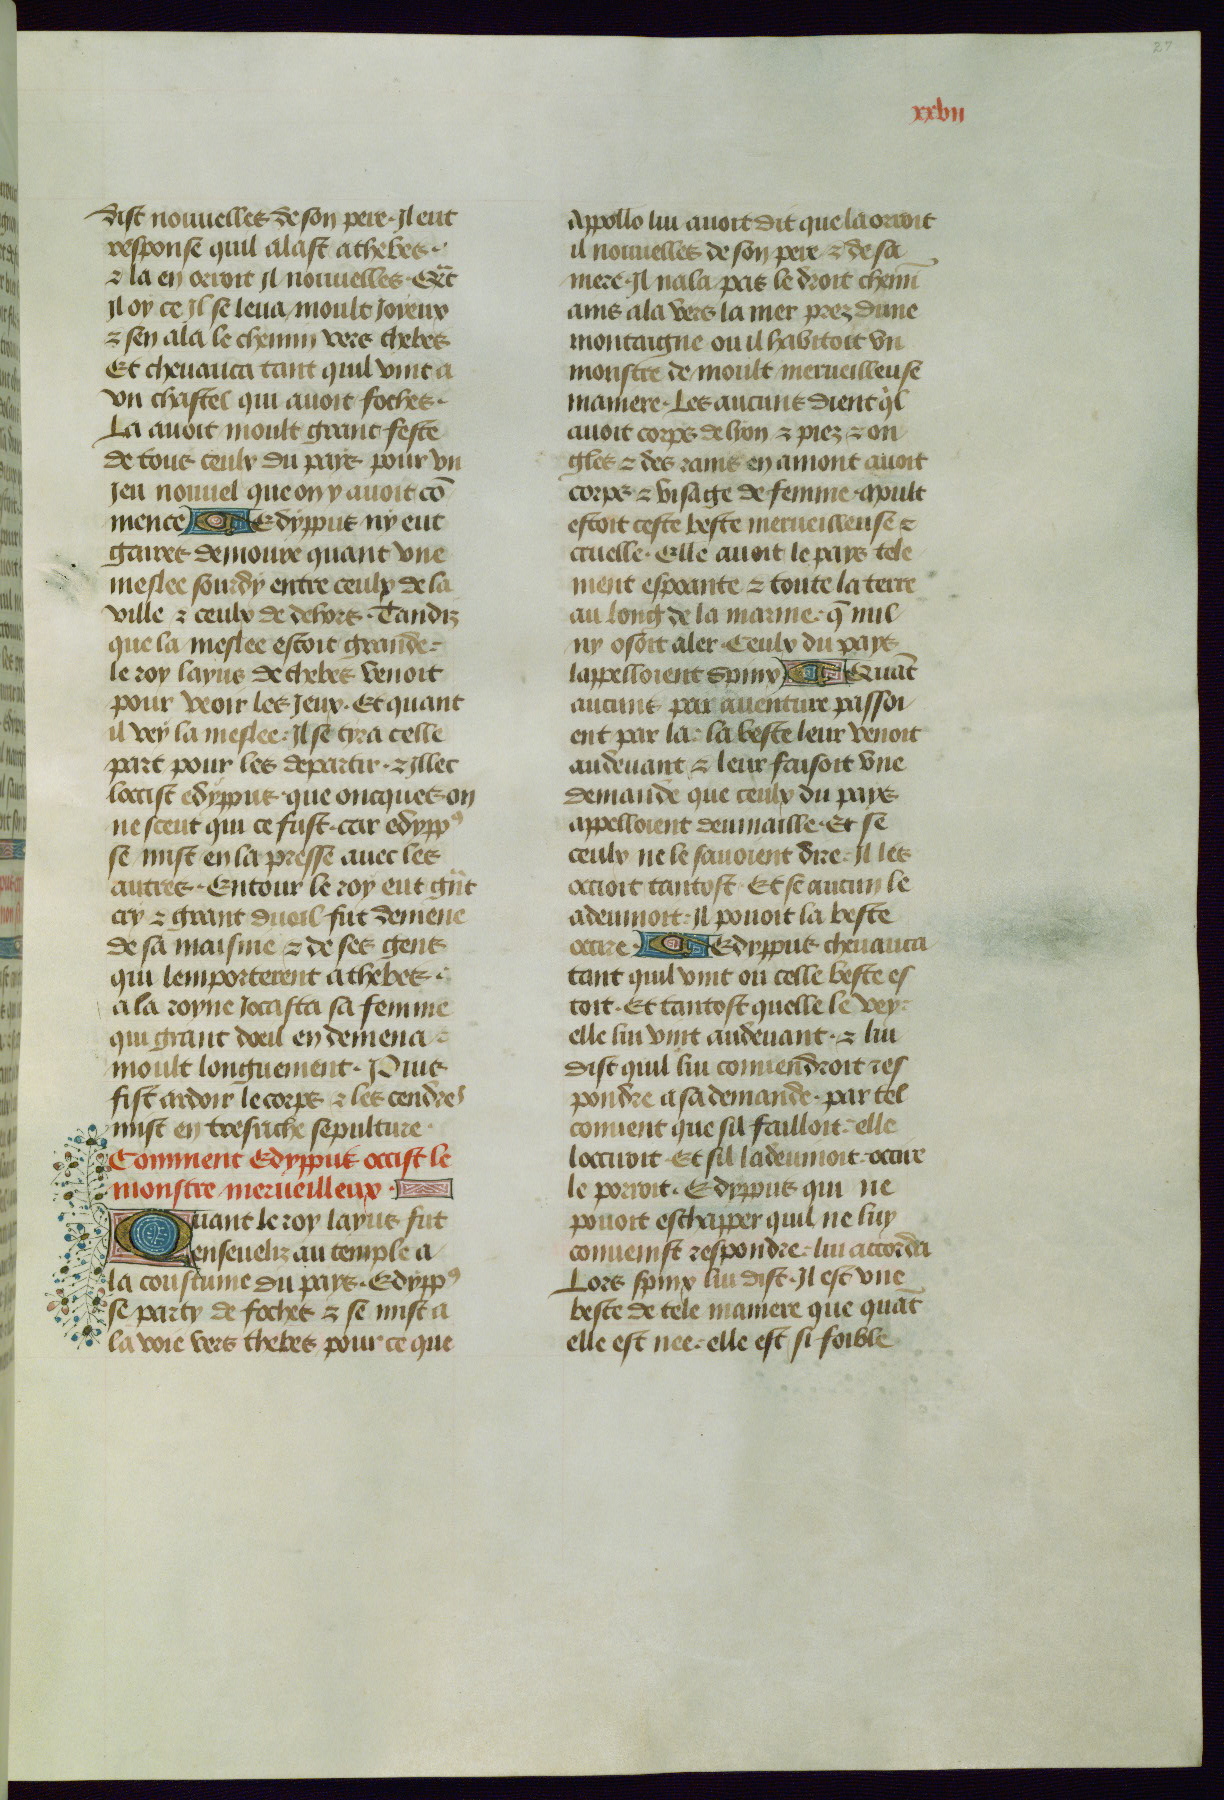 27
xxvii
dist nouuelles de son pere. Il eut
response quil alast a thebes.
⁊ la en orroit il nouuelles. Qñt
Il oy ce Il se leua moult Joyeux
⁊ sen ala le chemin vers thebes
Et cheuauca tant quil vint a
vn chastel qui auoit foches.
La auoit moult grant feste
de tous ceulx du pays pour vn
Jeu nouuel que on y auoit cō
mence Edyppus ny eut
gaires demoure quant vne
meslee sourdy entre ceulx de la
ville ⁊ ceulx de dehors. Tandiz
que la meslee estoit grande.
le roy layus de thebes venoit
pour veoir les Jeux. Et quant
il vey la meslee. Il se tyra celle
part pour les departir. ⁊ illec
loccist edyppus que oncques on
ne sceut qui ce fust. car edyppꝰ
se mist en la presse auec les
autres. Entour le roy eut gñt
cry ⁊ grant dueil fut demene
de sa maisnie ⁊ de ses gens
qui lemporterent a thebes.
a la royne Jocasta sa femme
qui grant doeil en demena
moult longuement. Puis
fist ardoir le corps ⁊ les cendres
mist en tresriche sepulture.
Comment Edyppus occist le
monstre merueilleux.
Quant le roy layus fut
enseueliz au temple a
la coustume du pays. Edyppꝰ
se party de foches ⁊ se mist a
la voie vers thebes pour ce que
Appollo lui auoit dit que la orroit
il nouuelles de son pere ⁊ de sa
mere. Il nala pas le droit chemī
ains ala vers la mer prez dune
montaigne ou il habitoit vn
monstre de moult merueilleuse
maniere. Les aucuns dient q̃l
auoit corps de lyon ⁊ piez ⁊ on
gles ⁊ des rains en amont auoit
corps ⁊ visage de femme. Moult
estoit ceste beste merueilleuse ⁊
cruelle. Elle auoit le pays tele
ment espoante ⁊ toute la terre
au long de la marine. q̄ nul
ny osoit aler. Ceulx du pays
lappelloient spinx Quāt
aucuns par auenture passoi
ent par la. la beste leur venoit
audeuant ⁊ leur faisoit vne
demande que ceulx du pays
appelloient deuinaille. Et se
ceulx ne le sauoient dire. Il les
occioit tantost. Et se aucun le
adeuinoit. Il pouoit la beste
occire. Edyppus cheuauca
tant quil vint ou celle beste es
toit. Et tantost quelle le vey.
elle lui vint audeuant. ⁊ lui
dist quil lui conuiendroit res
pondre a sa demande. par tel
conuent que sil failloit. elle
locciroit. Et sil ladeuinoit. occire
le porroit. Edyppus qui ne
pouoit eschapper quil ne luy
conuenist respondre. lui accorda
Lors spinx lui dist. Il est vne
beste de tele maniere que quāt
elle est nee. elle est si foible